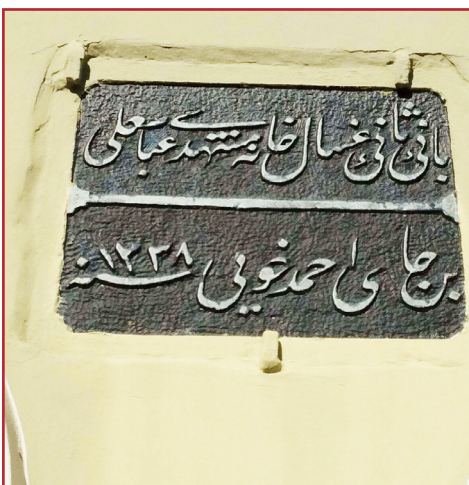 بانئ ثانئ غسال خانه مشهدے عباسعلی
بن حاجی احمد خویی سنه ۱۲۳۸